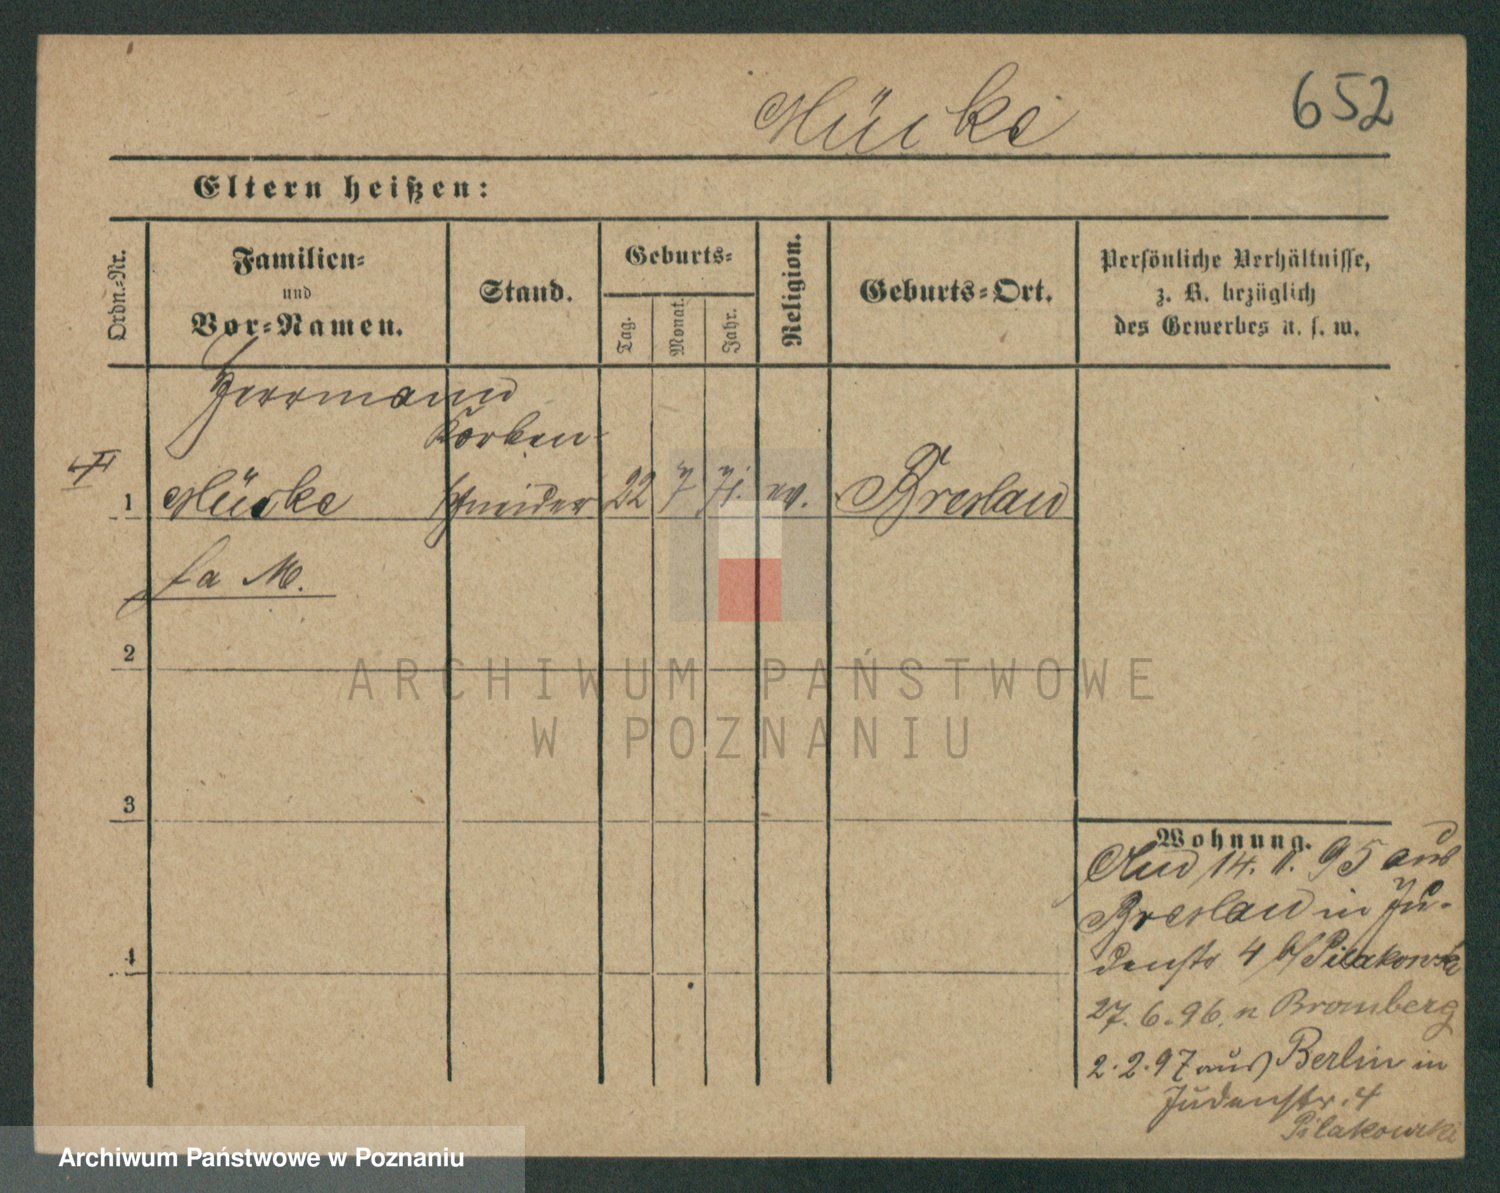 Mücke
652
Eltern heißen:
Ordn.-Nr.
Familien-
und
Vor-Namen.
Stand.
Geburts-
Tag.
Monat.
Jahr.
Religion.
Geburts-Ort.
Persönliche Verhältnisse,
z. B. bezüglich
des Gewerbes u. s. w.
Herrmann
Korken-
1 Mücke schneider 22 7 71. ev. Breslau
fa M.
2
3
4
Wohnung.
14. 11. 95 aus
Breslau in Ju-
denstr 4 b/ Pilakowski
27. 6. 96. n Bromberg
2. 2. 97 aus Berlin in
Judenstr. 4
Pilakowski
ARCHIWUM PAŃSTWOWE
W POZNANIU
Archiwum Państwowe w Poznaniu